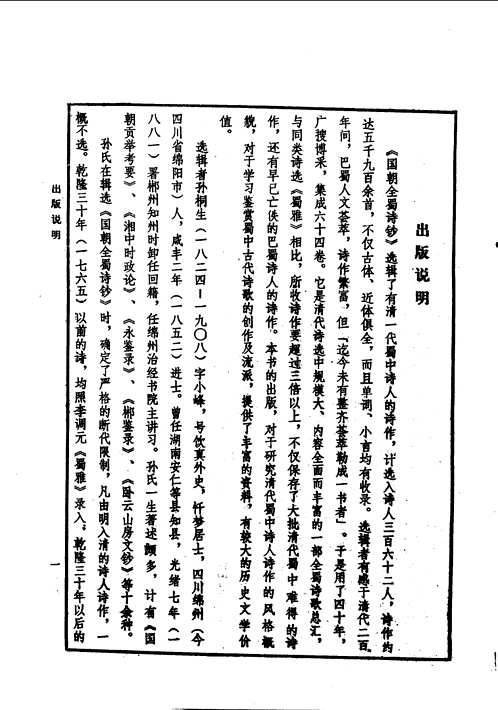 出版说明
《国朝全蜀诗钞》选辑了有清一代蜀中诗人的诗作，计选入诗人三百六十二人，诗作约
达五千九百余首，不仅古体、近体俱全，而且单词、小言均有收录。选辑者有感于清代二百
年间，巴蜀人文荟萃，诗作繁富，但「迄今未有整齐荟萃勒成一书者」。于是用了四十年，
广搜博采，集成六十四卷。它是清代诗选中规模大、内容全面而丰富的一部全蜀诗歌总汇，
与同类诗选《蜀雅》相比，所收诗作要超过三倍以上，不仅保存了大批清代蜀中难得的诗
作，还有早已亡佚的巴蜀诗人的诗作。本书的出版，对于研究清代蜀中诗人诗作的风格概
貌，对于学习鉴赏蜀中古代诗歌的创作及流派，提供了丰富的资料，有较大的历史文学价
值。
选辑者孙桐生（一八二四－一九〇八）字小峰，号饮真外史，忏梦居士，四川绵州（今
四川省绵阳市）人，咸丰二年（一八五二）进士。曾任湖南安仁等县知县，光绪七年（一
八八一）署郴州知州时卸任回籍，任绵州治经书院主讲习。孙氏一生著述颇多，计有《国
朝贡举考要》、《湘中时政论》、《永鉴录》、《郴鉴录》、《卧云山房文钞》等十余种。
孙氏在辑选《国朝全蜀诗钞》时，确定了严格的断代限制，凡由明入清的诗人诗作，一
概不选。乾隆三十年（一七六五）以前的诗，均照李调元《蜀雅》录入。乾隆三十年以后的
出版说明
一